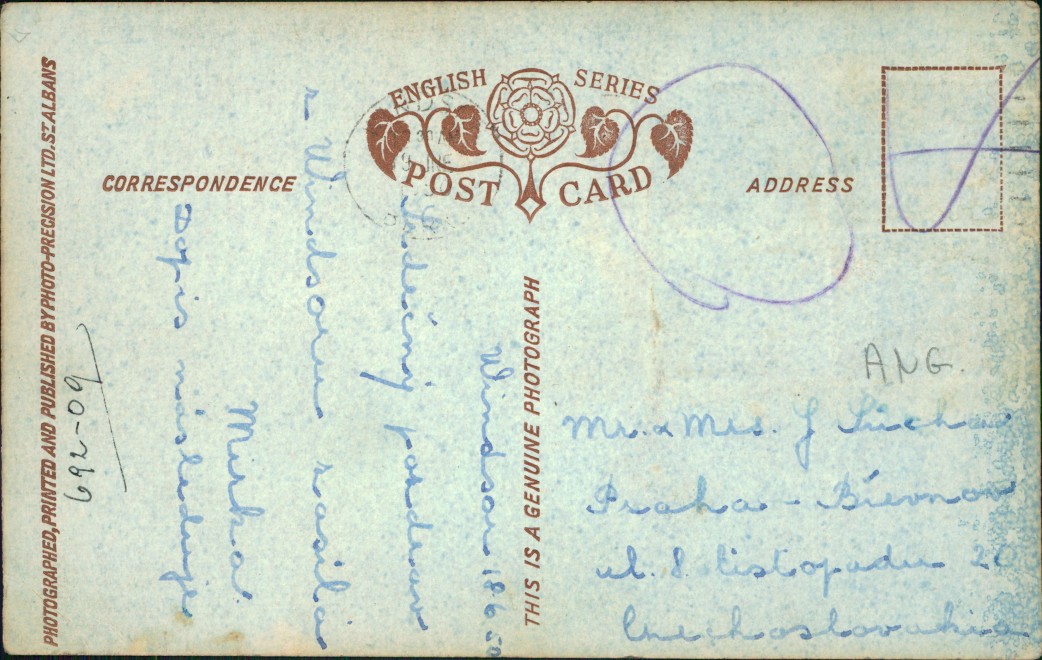 ENGLISH SERIES
POST CARD
CORRESPONDENCE
ADDRESS
PHOTOGRAPHED, PRINTED AND PUBLISHED BY PHOTO-PRECISION LTD. ST. ALBANS
THIS IS A GENUINE PHOTOGRAPH
692-09
Windsor 18 6 50
Srdečný pozdrav
z Windsoru zasílá
Mirka.
Dopis následuje
ANG.
Mr. & Mrs. J
Praha - Břevnov
ul. 8. listopadu
Czechoslovakia